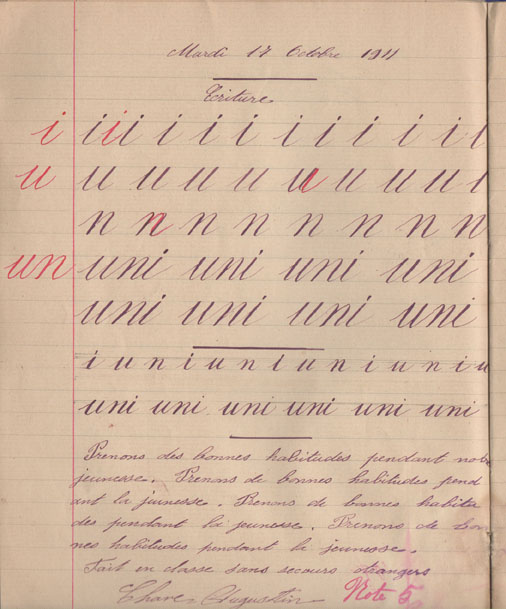 Mardi 17 Octobre 1911
Ecriture
i i i i i i i i i i i i i
u u u u u u u u u u u
n n n n n n n n
un uni uni uni uni
uni uni uni uni
i u n i u n i u n i u n i u
uni uni uni uni uni uni
Prenons des bonnes habitudes pendant notre
jeunesse. Prenons de bonnes habitudes pend
ant la jeunesse. Prenons de bonnes habitu
des pendant la jeunesse. Prenons de bon
nes habitudes pendant la jeunesse.
Fait en classe sans secours étrangers
Chave Augustin Note 5